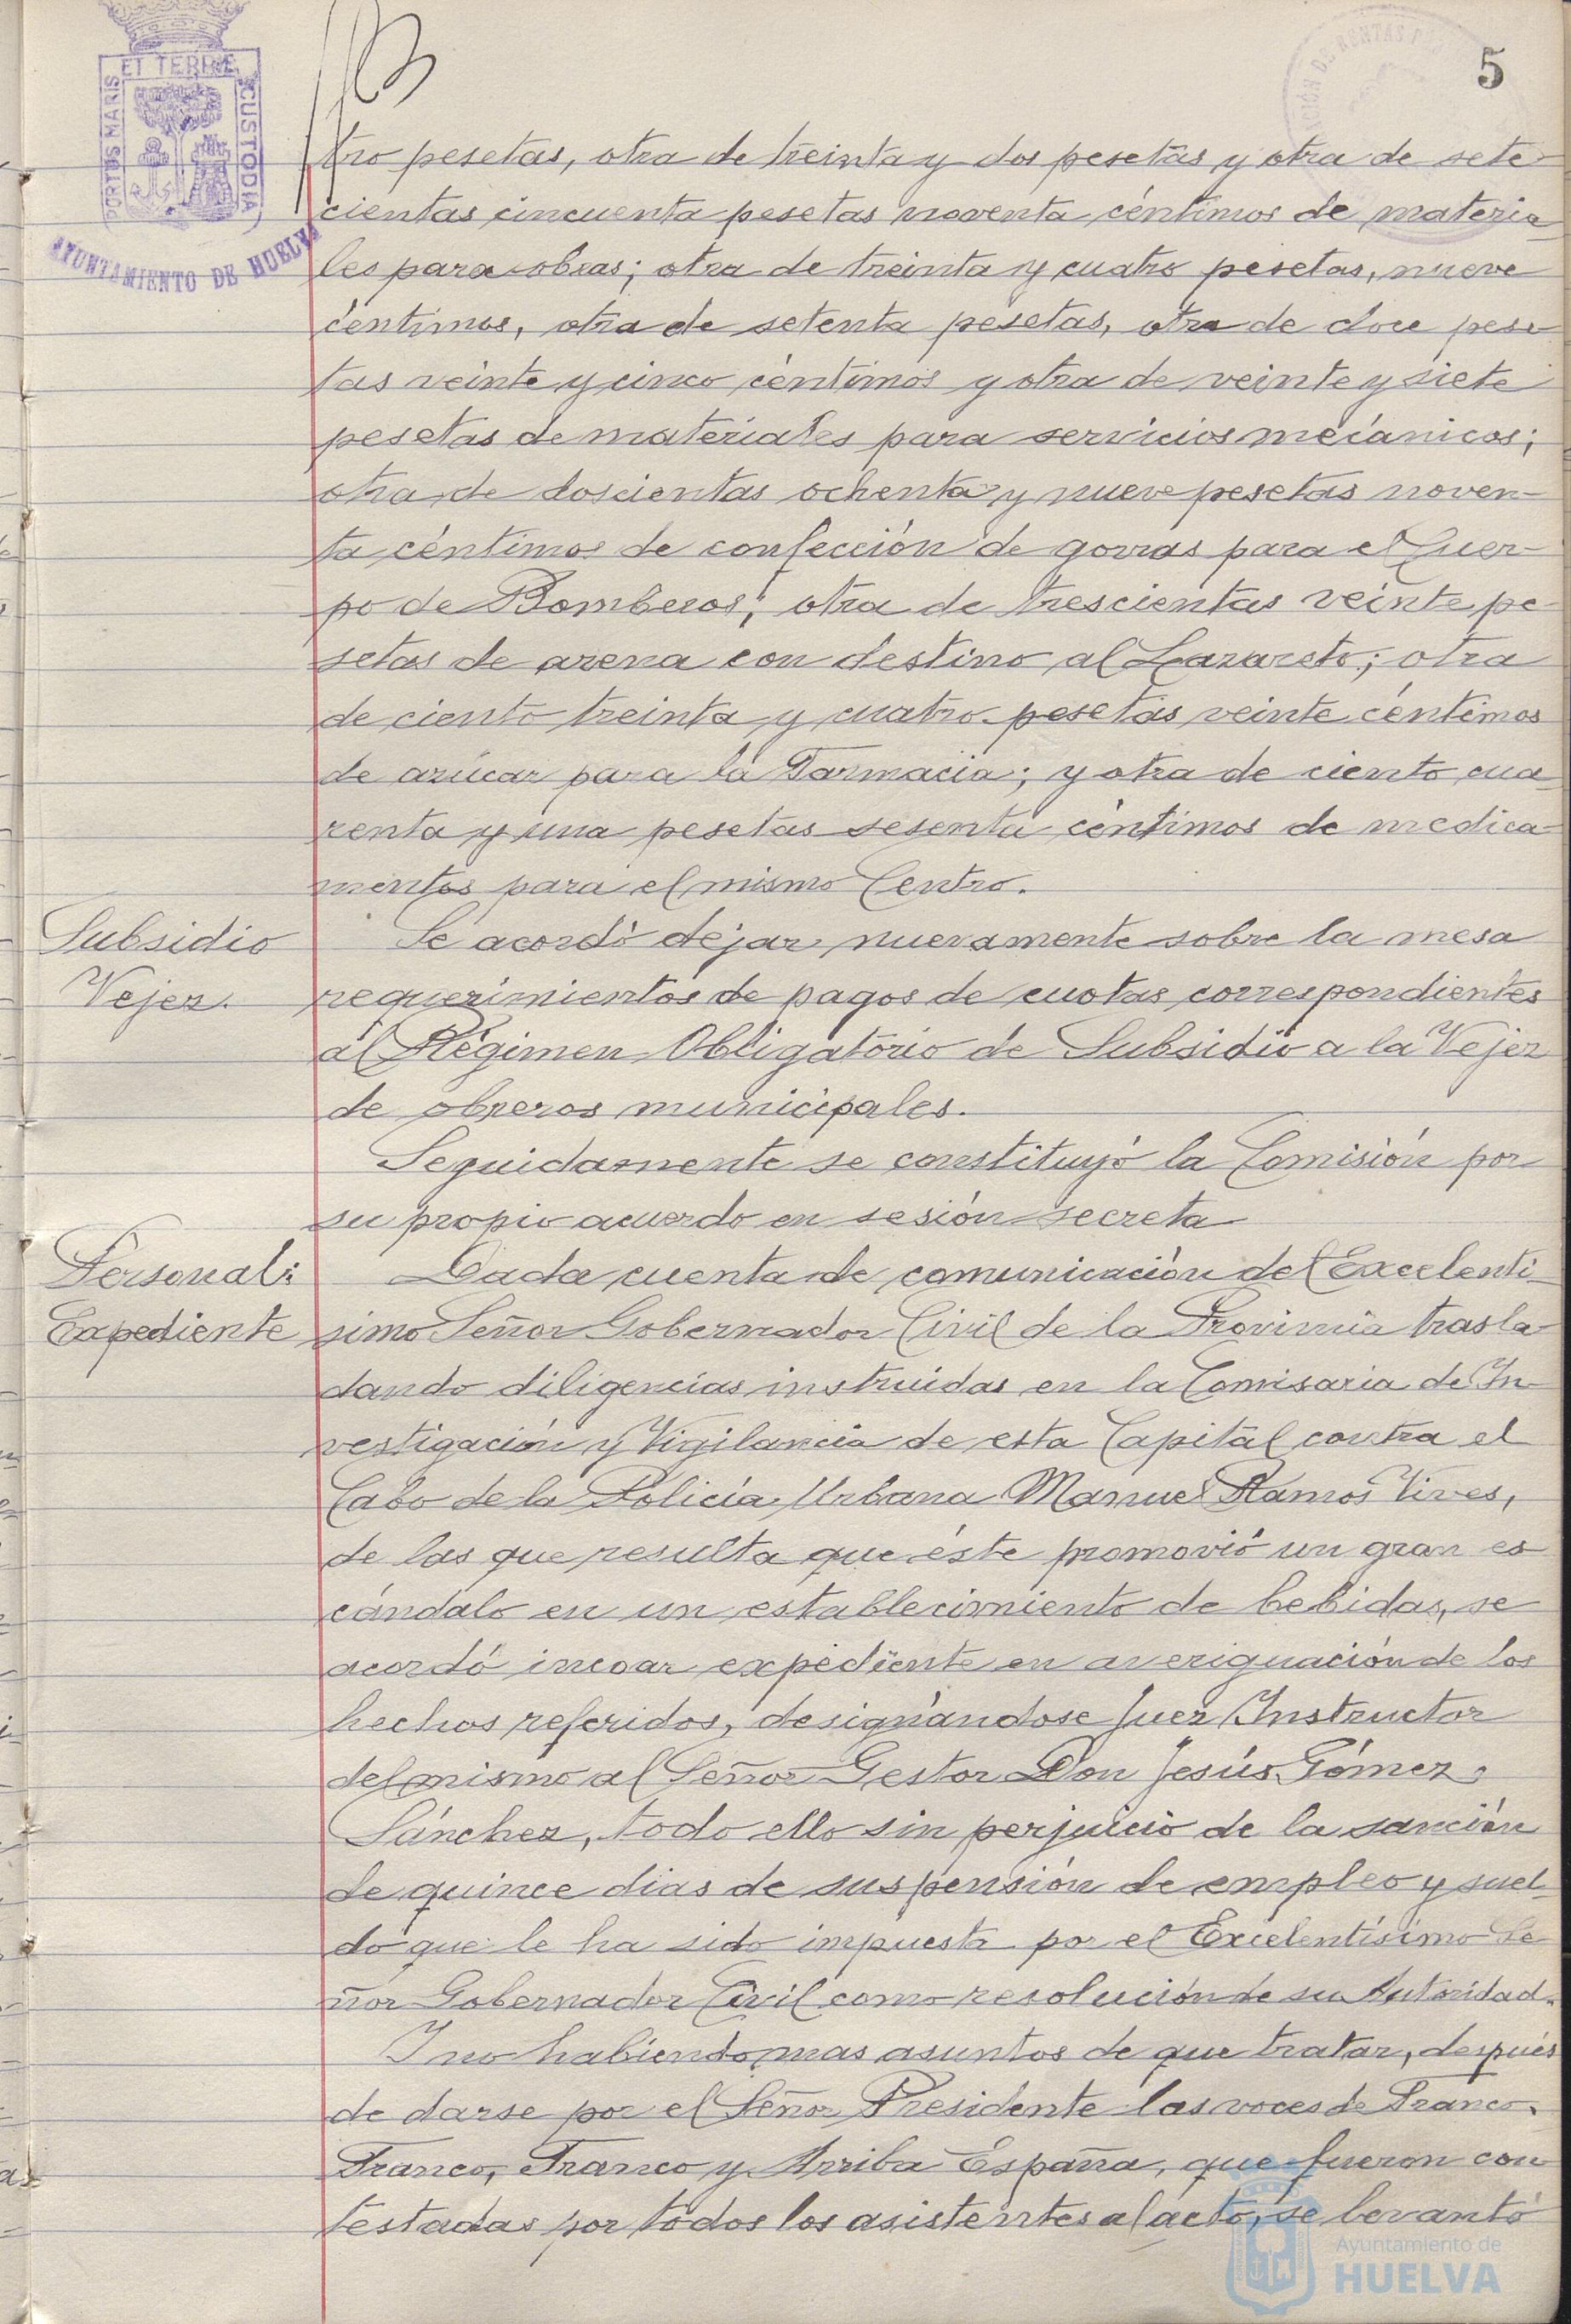 5
PORTUS MARIS ET TERRE CUSTODIA
AYUNTAMIENTO DE HUELVA
tro pesetas, otra de treinta y dos pesetas y otra de sete-
cientas cincuenta pesetas noventa céntimos de materia-
les para obras; otra de treinta y cuatro pesetas, nueve
céntimos, otra de setenta pesetas, otra de doce pese-
tas veinte y cinco céntimos y otra de veinte y siete
pesetas de materiales para servicios mecánicos;
otra de doscientas ochenta y nueve pesetas noven-
ta céntimos de confección de gorras para el Cuer-
po de Bomberos; otra de trescientas veinte pe-
setas de arena con destino al Lazareto; otra
de ciento treinta y cuatro pesetas veinte céntimos
de azúcar para la Farmacia; y otra de ciento cua-
renta y una pesetas sesenta céntimos de medica-
mentos para el mismo Centro.
Subsidio
Vejez.
Se acordó dejar nuevamente sobre la mesa
requerimientos de pagos de cuotas correspondientes
al Régimen Obligatorio de Subsidio a la Vejez
de obreros municipales.
Seguidamente se constituyó la Comisión por
su propio acuerdo en sesión secreta
Personal:
Expediente
Dada cuenta de comunicación del Excelentí-
simo Señor Gobernador Civil de la Provincia trasla-
dando diligencias instruidas en la Comisaria de In-
vestigación y Vigilancia de esta Capital contra el
Cabo de la Policía Urbana Manuel Ramos Vives,
de las que resulta que éste promovió un gran es-
cándalo en un establecimiento de bebidas, se
acordó incoar expediente en averiguación de los
hechos referidos, designándose Juez Instructor
del mismo al Señor Gestor Don Jesús Gómez
Sánchez, todo ello sin perjuicio de la sanción
de quince dias de suspensión de empleo y suel-
do que le ha sido impuesta por el Excelentísimo Se-
ñor Gobernador Civil como resolución de su Autoridad.
Y no habiendo mas asuntos de que tratar, después
de darse por el Señor Presidente las voces de Franco,
Franco, Franco y Arriba España, que fueron con-
testadas por todos los asistentes al acto, se levantó
Ayuntamiento de
HUELVA